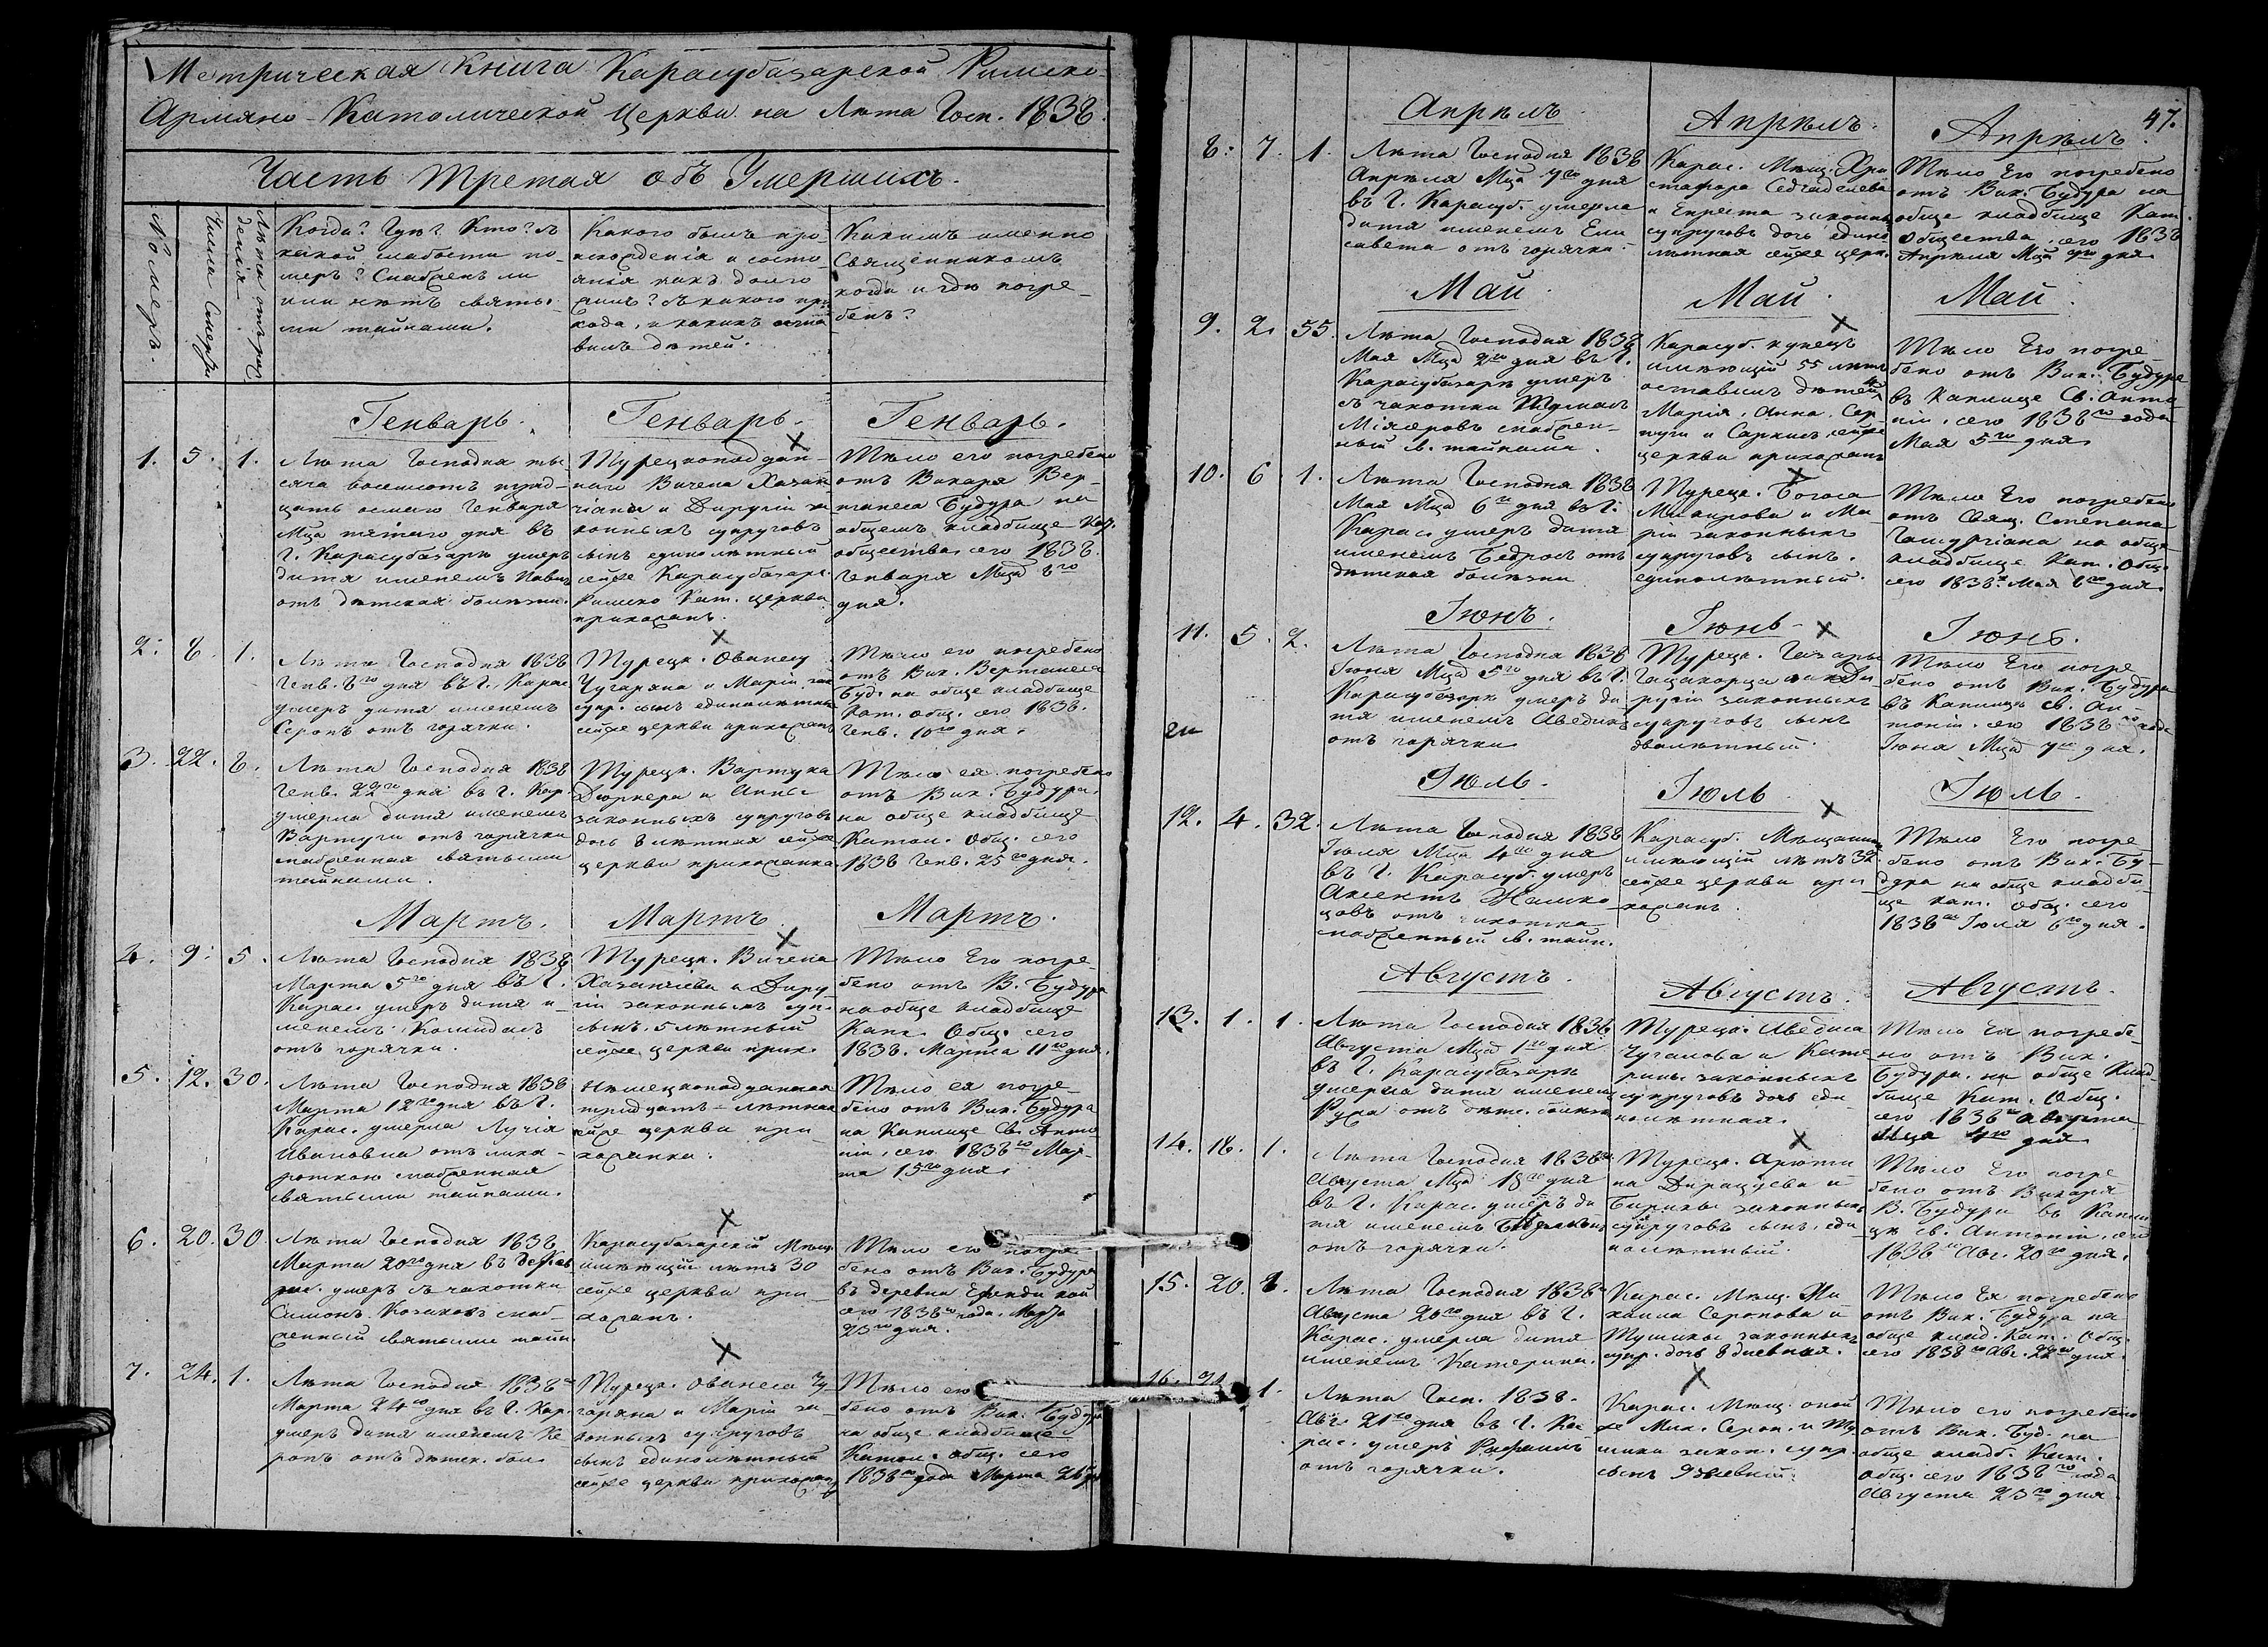 Метрическая Книга Карасубазарской Римско-
Армяно-Католической Церкви на Лѣта Госп. 1838.
Часть Третая объ Умершихъ.
Номеръ.
Числа Смерти
Лѣта отъ рож
денія
Когда? Гдѣ? Кто? съ
какой слабости по-
меръ? Снабженъ ли
или нѣтъ святы-
ми тайнами.
Какого былъ про-
исхожденія и состо-
янія какъ долго
жилъ? съ какого при
хода, и какихъ оста
вилъ дѣтей.
Какимъ именно
Священникомъ
когда и гдѣ погре-
бенъ?
Генварь.
Генварь.
Генварь.
1. 5. 1.
Лѣта Господня ты-
сяча восемьсотъ трид-
цать осмаго Генваря
Мца пятаго дня въ
Г. Карасубазарѣ умеръ
дитя именемъ
отъ дѣтская болѣзни.
Турецкоподдан-
наго Вичена
и Дируги за-
конныхъ супруговъ
сынъ единолѣтный
сейже Карасубазар.
Римско Кат. церкви
прихожанъ.
Тѣло его погребено
отъ Викаря Вер-
танеса Будура на
общемъ кладбище Кат.
общества, сего 1838.
Генваря Мца 8го
дня.
2. 8. 1.
Лѣта Господня 1838
Генв. 8го дня въ Г. Карас
умеръ дитя именемъ
Серопъ отъ горячки.
Турецк. Ованесу
Чугаряна и Маріи зак
супр. сынъ единолѣтный
сейже церкви прихожанъ
Тѣло его погребено
отъ Вик. Вертанеса
Буд. на обще кладбище
Кат. общ. сего 1838.
Генв. 10го дня.
3. 22. 8.
Лѣта Господня 1838
Генв. 22го дня въ Г. Кар.
умерла дитя именемъ
Вартуги отъ горячки
снабженная святыми
тайнами.
Турецк. Вартука
Дюрнера и Анны
законныхъ супруговъ
дочь 8 лѣтная сейже
церкви прихожанка
Тѣло ея погребено
отъ Вик. Будура.
на обще кладбище
Катол. Общ. сего
1838 Генв. 25го дня.
Мартъ.
Мартъ
Мартъ.
4. 9. 5.
Лѣта Господня 1838
Марта 5го дня въ Г.
Карас. умеръ дитя и-
менемъ Комидасъ
отъ горячки.
Турецк. Вичена
Хазанчіева и Диру-
гіи законныхъ суп.
сынъ. 5 лѣтный
сейже церкви прих.
Тѣло Его погре-
бено отъ В. Будура
на обще кладбище
Кат. Общ. сего
1838. Марта 11го дня.
5. 12. 30.
Лѣта Господня 1838
Марта 12го дня въ Г.
Карас. умерла Лучія
Ивановна отъ лихо-
радкою снабженная
святыми тайнами.
Нѣмецкоподданная
тридцать-лѣтная
сейже церкви при-
хожанка.
Тѣло ея погре-
бено отъ Вик. Будура
на Каплице Св. Анто-
ніи, сего 1838го Мар-
та 15го дня.
6. 20. 30
Лѣта Господня 1838
Марта 20го дня въ
умеръ съ чахотки
Симонъ Козаковъ снаб-
женный святыми тайн.
Карасубазарскій Мѣщ.
имѣющій лѣтъ 30
сейже церкви при-
хожанъ.
Тѣло его погре-
бено отъ Вик. Будура
въ деревни Ефенди кой
сего 1838го года. Марта
23го дня.
7. 24. 1.
Лѣта Господня 1838
Марта 24го дня въ Г. Кар.
умеръ дитя именемъ Се
ропъ отъ дѣтск. бол.
Турецк. Ованеса Чу-
гаряна и Маріи за-
конныхъ супруговъ
сынъ единолѣтный
сейже церкви прихожанъ
Тѣло его
бено отъ Вик. Будура
на обще кладбище
Катол. общ. сего
1838го года Марта 26 дня
47.
Апрѣль
Апрѣль.
Апрѣль.
8. 7. 1.
Лѣта Господня 1838
Апрѣля Мца 7го дня
въ Г. Карасуб. умерла
дитя именемъ Ели
савета отъ горячки.
Карас. Мѣщ. Хри
стафора
и Екреста законныхъ
супруговъ дочь едино
лѣтная сейже церк.
Тѣло Его погребено
отъ Вик. Будура на
обще кладбище Кат.
Общества, сего 1838
Апрѣля Мца 9го дня.
Май
Май.
Май.
9. 2. 55.
Лѣта Господня 1838
Мая Мца 2го дня въ Г.
Карасубазарѣ умеръ
съ чахотки Тумасъ
снабжен-
ный с. тайнами.
Карасуб. купецъ
имѣющій 55 лѣтъ
оставилъ дѣтей
Марія, Анна, Сер
пуги и Саркисъ, сейже
церкви прихожанъ
Тѣло Его погре-
бено отъ Вик. Будура
въ Каплице Св. Анто-
ніи, сего 1838го года
Мая 5го дня.
10. 6. 1.
Лѣта Господня 1838
Мая Мца 6го дня въ Г.
Карас. умеръ дитя
именемъ Бедросъ отъ
дѣтская болѣзни
Турецк. Богоса
Макирова и Ма-
ріи законныхъ
супруговъ сынъ.
единолѣтный.
Тѣло Его погребено
отъ Свящ. Степана
на обще
кладбище Кат. Общ.
сего 1838. Мая 8го дня.
Іюнъ.
Іюнь.
Іюнь.
11. 5. 2.
Лѣта Господня 1838
Іюня Мца 5го дня въ Г.
Карасубазарѣ умеръ ди
тя именемъ Аведикъ
отъ горячки
Турецк. Газара
и Ди-
ругіи законныхъ
супруговъ сынъ
двалѣтный.
Тѣло Его погре
бено отъ Вик. Будура
въ Каплицѣ св. Ан-
тоніи. сего 1838го года
Іюня Мца 7го дня.
Іюль.
Іюль
Іюль.
12. 4. 32.
Лѣта Господня 1838
Іюля Мца 4го дня
въ Г. Карасуб. умеръ
Аксентъ
цовъ отъ чахотка
снабженный с. тайн.
Карасуб. Мѣщанинъ
имѣющій лѣтъ 32
сейже церкви при-
хожанъ.
Тѣло Его погре
бено отъ Вик. Бу-
дура на обще кладби-
ще кат. Общ. сего
1838го Іюля 6го дня.
Августъ.
Августъ.
Августъ.
13. 1. 1.
Лѣта Господня 1838
Августа Мца 1го дня
въ Г. Карасубазарѣ
умерла дитя именемъ
отъ дѣтс. болѣзни
Турецк. Аведиса
Чуганова и Кате
рины законныхъ
супруговъ дочь еди-
нолѣтная.
Тѣло Ея погребе-
но отъ Вик.
Будура. на обще Клад-
бище Кат. Общ.
сего 1838го Августа
Мца 4го дня.
14. 18. 1.
Лѣта Господня 1838го
Августа Мца 18го дня
въ Г. Карас. умеръ ди
тя именемъ
отъ горячки.
Турецк. Арюти
на и
законныхъ
супруговъ сынъ. еди
нолѣтный.
Тѣло Его погре
бено отъ Викаря
В. Будура въ Капли
цѣ св. Антоніи, сего
1838го Авг. 20го дня.
15. 20. 8.
Лѣта Господня 1838
Августа 20го дня въ Г.
Карас. умерла дитя
именемъ Катерина.
Карас. Мѣщ. Ми
хаила Серопова и
Тушики законныхъ
супр. дочь 8 дневная.
Тѣло Ея погребено
отъ Вик. Будура на
обще клад. Кат. Общ.
сего 1838го Авг. 22го дня.
16. 21 1.
Лѣта Госп. 1838.
Авг. 21го дня въ Г. Ка
рас. умеръ Рафаилъ
отъ горячки.
Карас. Мѣщ. оной
же Мих. Сероп. и Ту
шики закон. супр.
сынъ 9 дневный.
Тѣло его погребено
отъ Вик. Буд. на
обще кладб. Катол.
общ. сего 1838го года
Августа 23го дня.